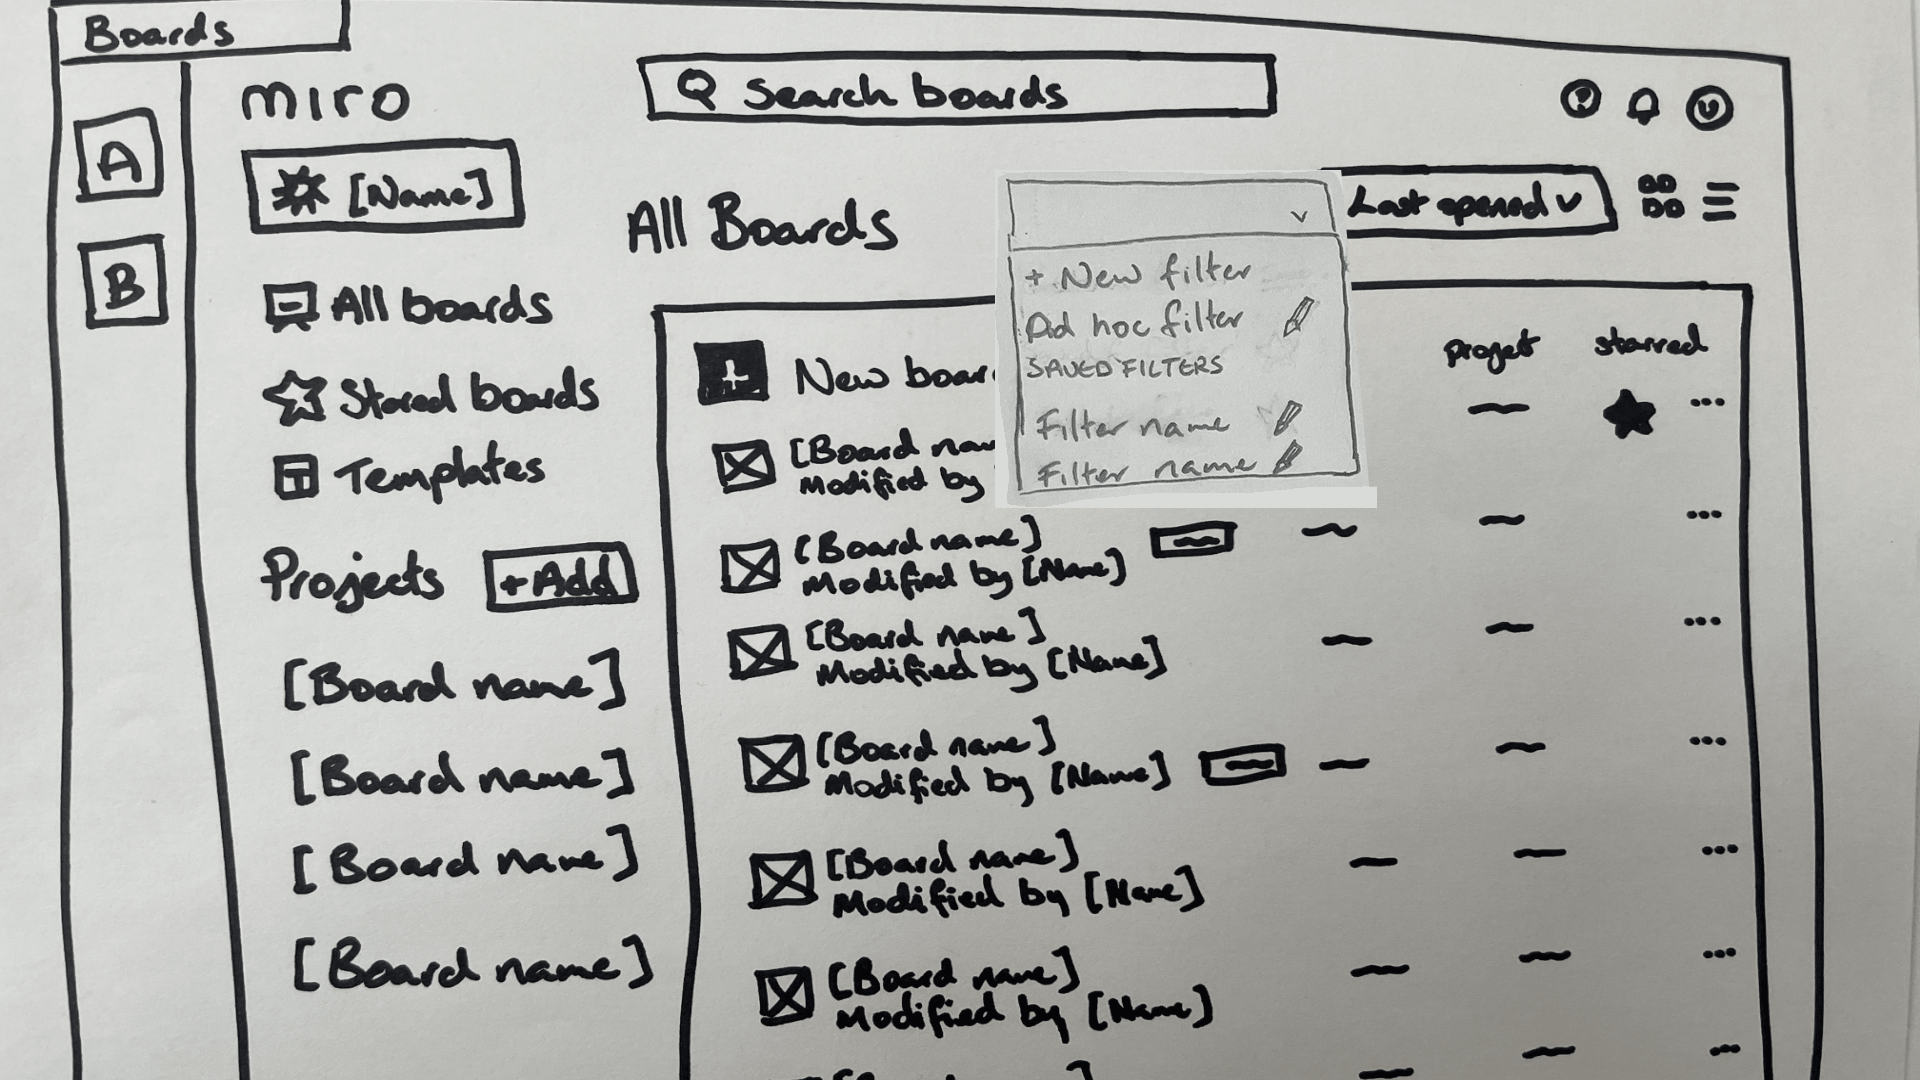 Boards
miro
Search boards
?
A
[Name]
B
All boards
Stared boards
Templates
Projects
+Add
[Board name]
[Board name]
[Board name]
[Board name]
All Boards
Last opened
+ New filter
Ad hoc filter
SAVED FILTERS
Filter name
Filter name
project
starred
New board
[Board name
Modified by
[Board name]
Modified by [Name]
[Board name]
Modified by [Name]
[Board name]
Modified by [Name]
[Board name]
Modified by [Name]
[Board name]
Modified by [Name]